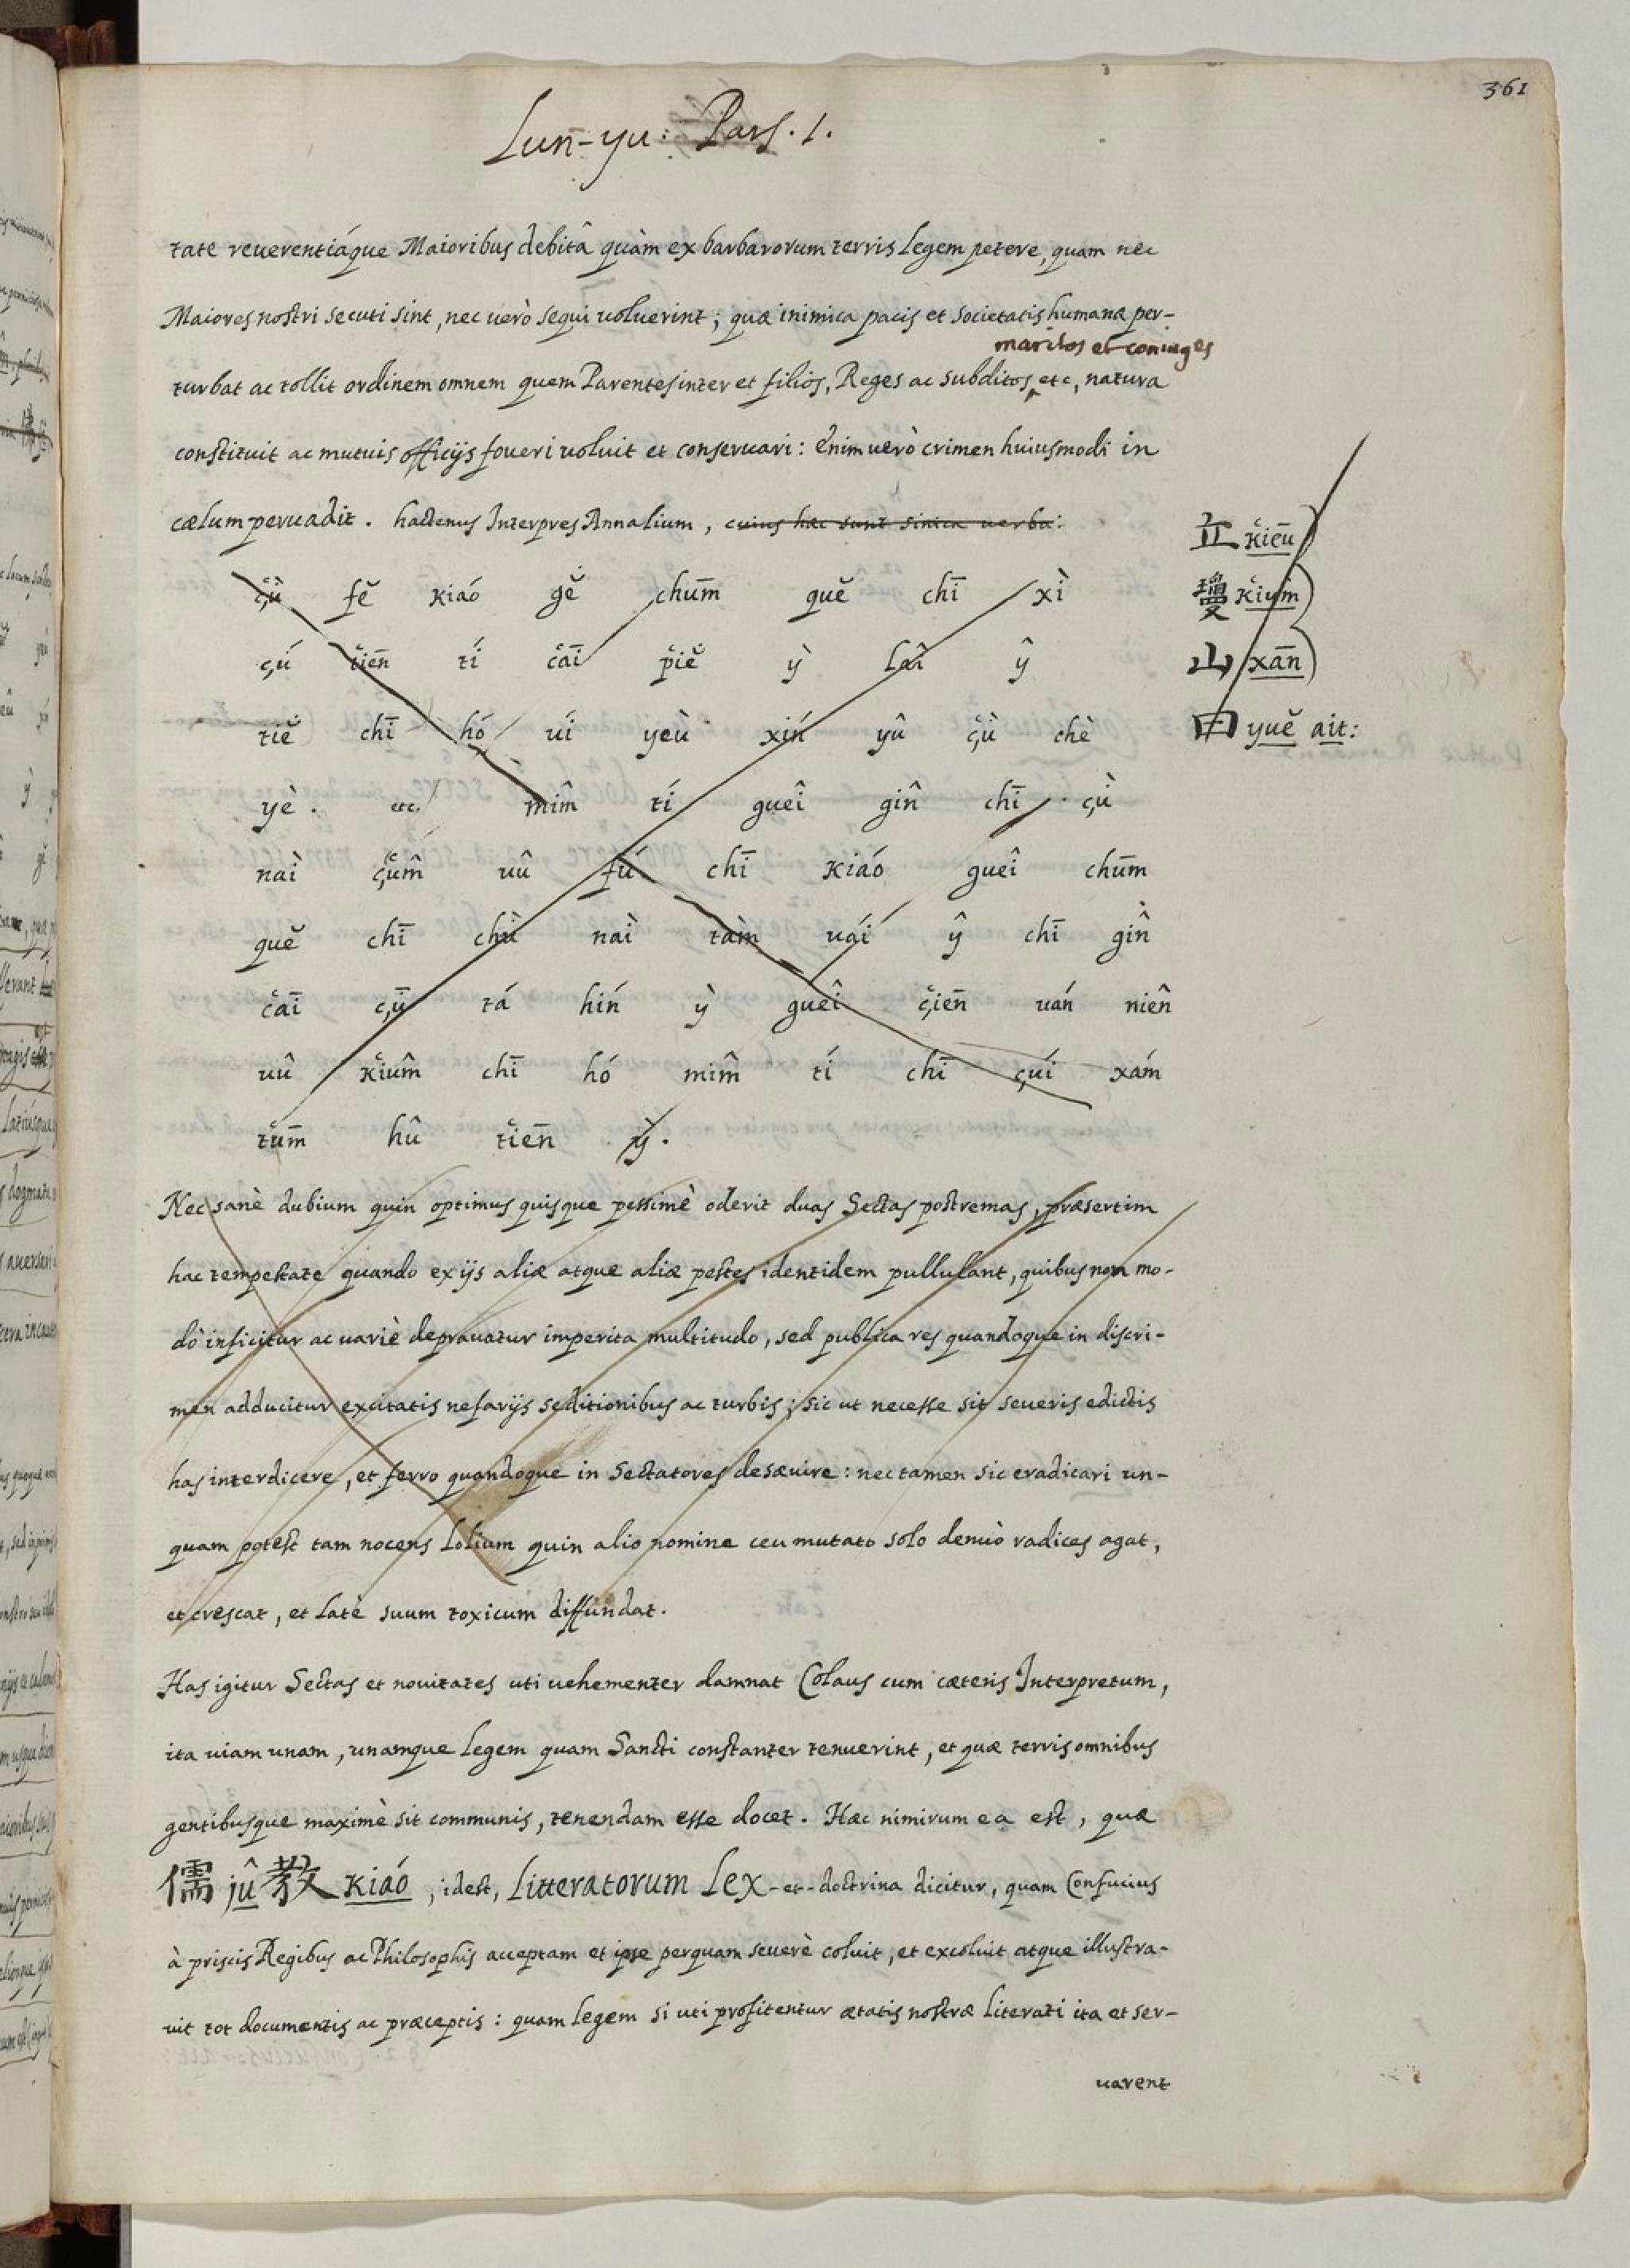 361
Lun-yu: Pars. 1.
tate reuerentiáque Maioribus debitâ quàm ex barbarorum terris Legem petere, quam nec
Maiores nostri secuti sint, nec uerò sequi uoluerint; quæ inimica pacis et societatis humanæ per-
maritos et coniuges
turbat ac tollit ordinem omnem quem Parentes inter et filios, Reges ac subditos, etc, natura
constituit ac mutuis officijs foueri uoluit et conseruari: Enimuerò crimen huiusmodi in
cælum peruadit. hactenus Interpres Annalium, cuius hæc sunt sinica uerba:
丘 kieū)
瓊 kiūm)
山 xān)
曰 yuĕ ait:
çù fĕ kiáo gĕ chūm quĕ chī xì
çú tiēn tí cāi piĕ ỳ laî ŷ
tiĕ chī hó úi yeù xín yû çù chè
yè. etc. mîm tí gueî gîn chī çù
nài çûm uû fú chī kiáo gueî chūm
quĕ chī chù nài tàm uái ŷ chī gîn
cāi çū tá hín ỳ gueî çiēn uán niên
uû kiûm chī hó mîm tí chī çúi xám
tūm hû tiēn ỳ.
Nec sanè dubium quin optimus quisque pessimè oderit duas Sectas postremas, præsertim
hac tempestate quando ex ijs aliæ atque aliæ pestes identidem pullulant, quibus non mo-
dò inficitur ac uariè deprauatur imperita multitudo, sed publica res quandoque in discri-
men adducitur excitatis nefarijs seditionibus ac turbis; sic ut necesse sit seueris edictis
has interdicere, et ferro quandoque in Sectatores desæuire: nec tamen sic eradicari un-
quam potest tam nocens Lolium quin alio nomine ceu mutato solo denuò radices agat,
et crescat, et Latè suum toxicum diffundat.
Has igitur Sectas et nouitates uti uehementer damnat Colaus cum cæteris Interpretum,
ita uiam unam, unamque Legem quam Sancti constanter tenuerint, et quæ terris omnibus
gentibusque maximè sit communis, tenendam esse docet. Hæc nimirum ea est, quæ
儒 jû 教 kiáo, idest, Litteratorum Lex et doctrina dicitur, quam Confucius
à priscis Regibus ac Philosophis acceptam et ipse perquam seuerè coluit, et excoluit atque illustra-
uit tot documentis ac præceptis: quam legem si uti profitentur ætatis nostræ Literati ita et ser-
uarent